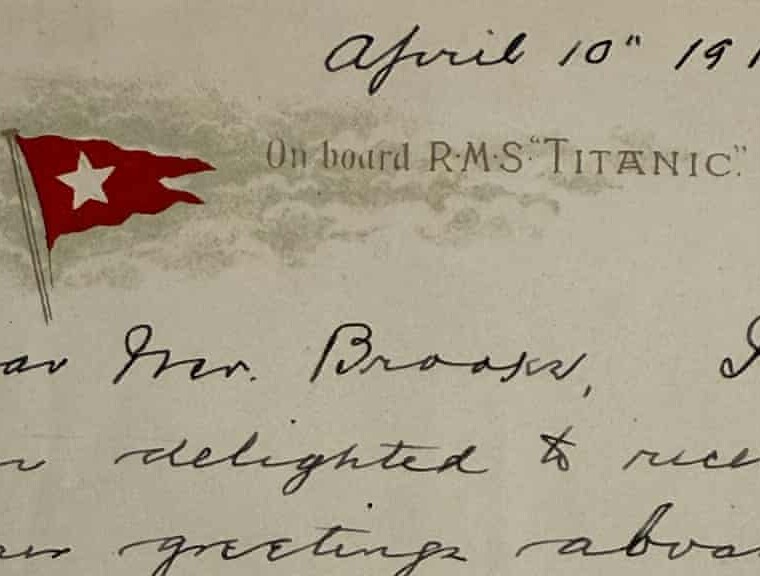 April 10" 191
On board R·M·S· "TITANIC".
ar Mr. Brooks, I
delighted to rece
greetings aboa